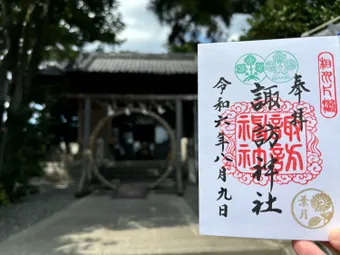 奉拝
諏訪神社
令和六年八月九日
諏訪
葉月